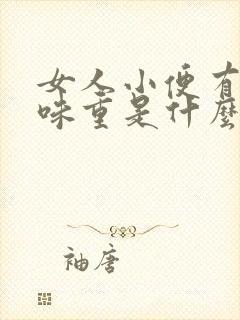 女人小便有
味重是什麼
袖唐